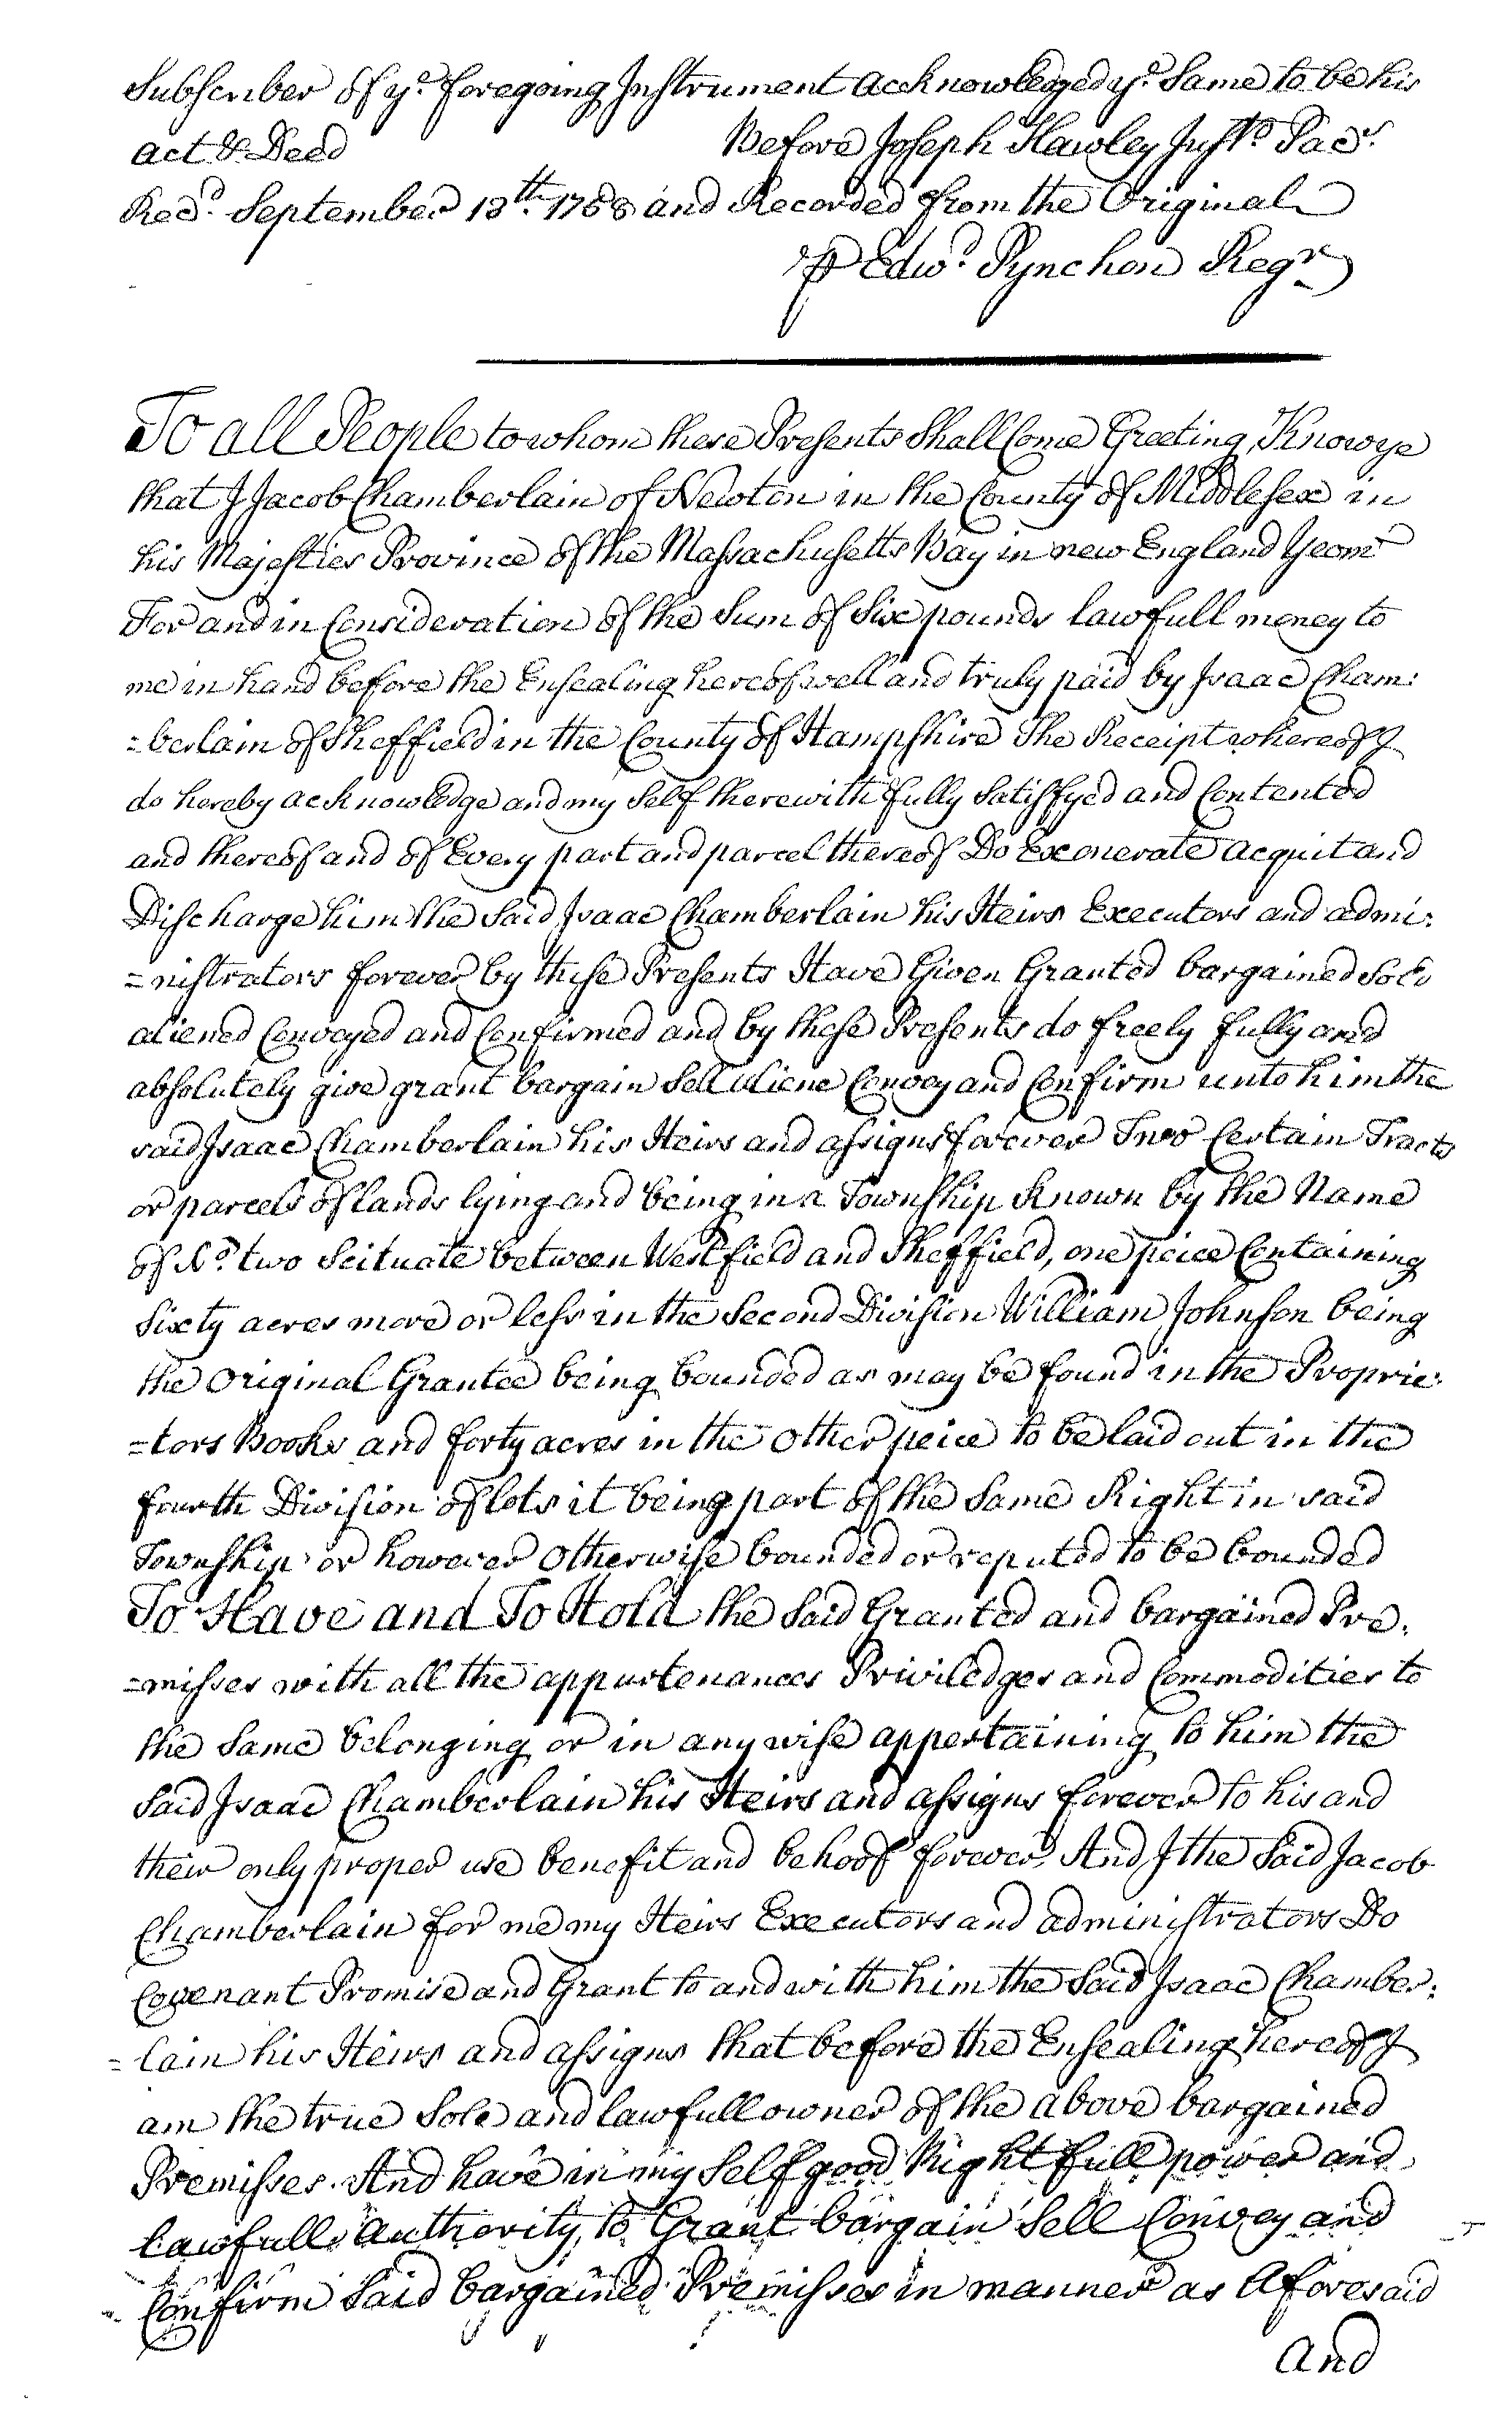 Subscriber of ye. foregoing Instrument acknowledged ye. Same to be his
act & Deed Before Joseph Hawley Justo. Pacs.
Recd. September 13th. 1758 and Recorded from the Original
⅌ Edwd. Pynchon Regr
To all People to whom these Presents Shall Come Greeting, Know ye
that I Jacob Chamberlain of Newton in the County of Middlesex in
his Majesties Province of the Massachusetts Bay in new England Yeomn
For and in Consideration of the Sum of Six pounds lawfull money to
me in hand before the Ensealing hereof well and truly paid by Isaac Cham:
=berlain of Sheffield in the County of Hampshire The Receipt whereof I
do hereby acknowledge and my Self therewith fully Satisfyed and Contented
and thereof and of Every part and parcel thereof Do Exonerate acquit and
Discharge him the Said Isaac Chamberlain his Heirs Executors and admi:
=nistrators forever by these Presents Have Given Granted bargained Sold
aliened Conveyed and Confirmed and by these Presents do freely fully and
absolutely give grant bargain Sell aliene Convey and Confirm unto him the
said Isaac Chamberlain his Heirs and assigns forever Two Certain Tracts
or parcels of lands lying and being in a Township Known by the Name
of No. two Scituate between Westfield and Sheffield, one peice Containing
Sixty acres more or less in the Second Division William Johnson being
the Original Grantee being bounded as may be found in the Proprie:
=tors Books and forty acres in the other peice to be laid out in the
fourth Division of lots it being part of the Same Right in said
Township or however otherwise bounded or reputed to be bounded
To Have and To Hold the Said Granted and bargained Pre:
=misses with all the appurtenances Priviledges and Commodities to
the Same belonging or in any wise appertaining to him the
Said Isaac Chamberlain his Heirs and assigns forever to his and
their only proper use benefit and behoof forever, And I the Said Jacob
Chamberlain for me my Heirs Executors and administrators Do
Covenant Promise and Grant to and with him the Said Isaac Chamber:
=lain his Heirs and assigns that before the Ensealing hereof I
am the true Sole and lawfull owner of the above bargained
Premisses. And have in my Self good Right full power and
lawfull authority, to Grant bargain Sell Convey and
Confirm Said bargained Premisses in manner as Aforesaid
and